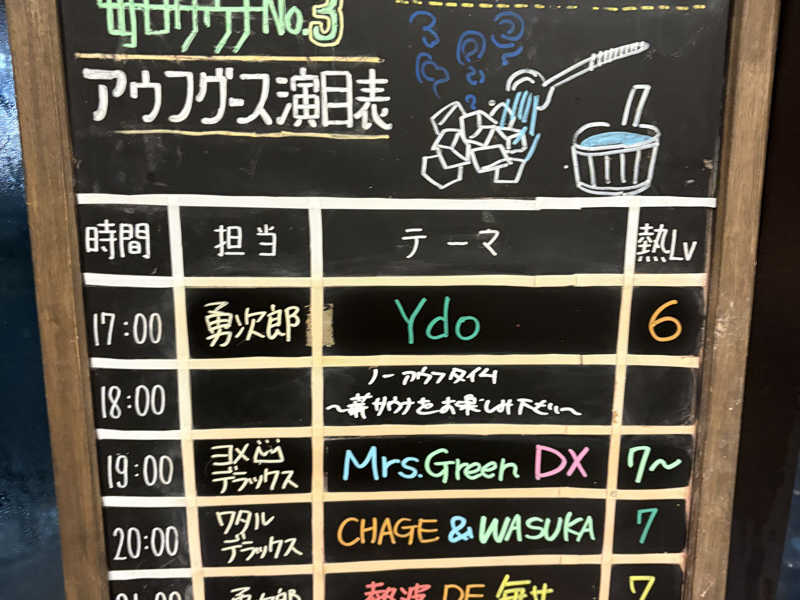 毎日サウナ No.3
アウフグース演目表
時間 担当 テーマ 熱Lv
17:00 勇次郎 Ydo 6
18:00 ノーアウフタイム
~蒸サウナをお楽しみ下さい~
19:00 ヨメ デラックス Mrs.Green DX 7~
20:00 ワタル デラックス CHAGE & WASUKA 7
21:00 勇次郎 熱波 DE 毎サ 7